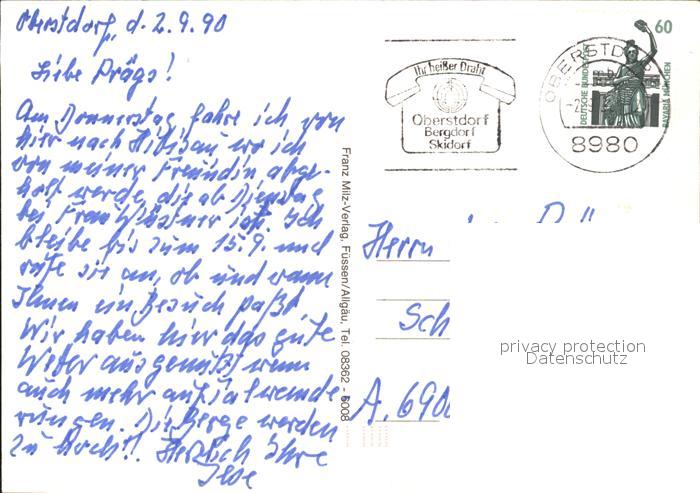 Oberstdorf, d. 2.9.90
Liebe Prägs!
Am Donnerstag fahre ich von
hier nach Hittisau wo ich
von meiner Freundin abge-
holt werde, die ab Dienstag
bei Frau Wüstner ist. Ich
bleibe bis zum 15.9. und
rufe sie an, ob und wann
Ihnen ein Besuch paßt.
Wir haben hier das gute
Wetter ausgenützt wenn
auch mehr auf
rungen. Die Berge werden
zu hoch!! Herzlich Ihre
Ilse
Franz Milz-Verlag, Füssen/Allgäu, Tel. 08362 - 6008
Ihr heißer Draht
Oberstdorf
Bergdorf
Skidorf
OBERSTD
8980
60
DEUTSCHE BUNDESPOST
BAVARIA MÜNCHEN
Herrn
Sch
A. 690
privacy protection
Datenschutz